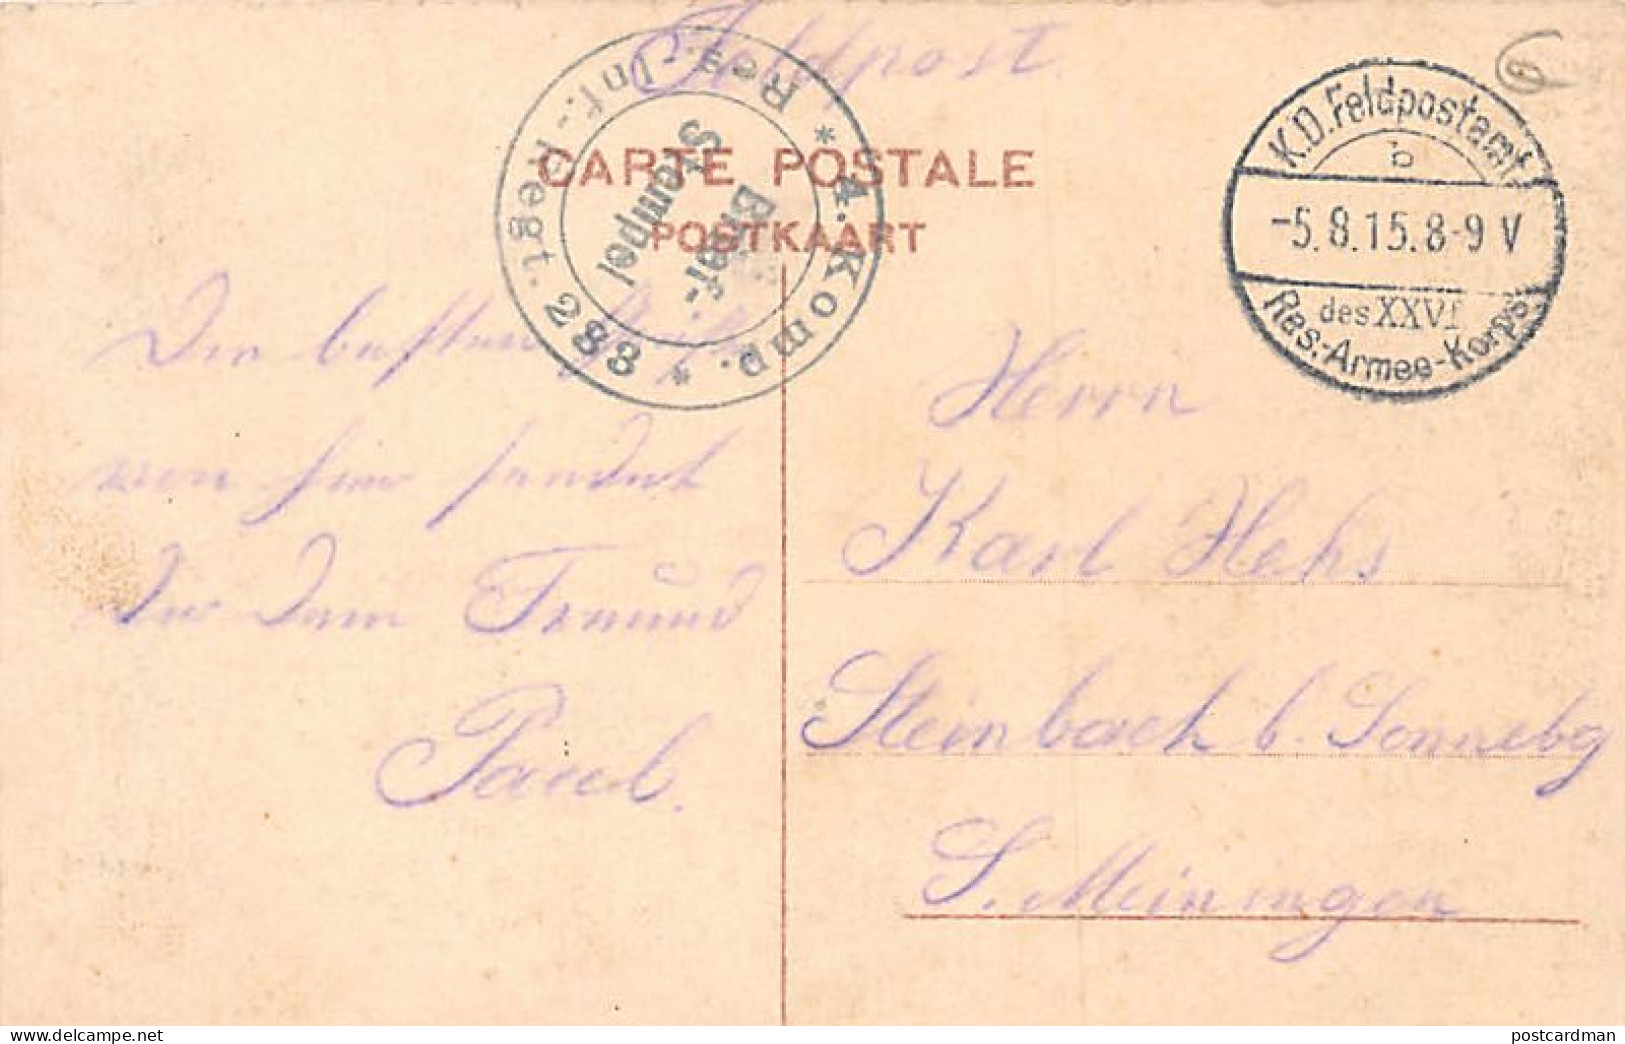 Feldpost.
CARTE POSTALE
POSTKAART
4. Komp. * Res.-Inf.-Regt. 233 *
Brief-
Stempel
K.D. Feldpostamt
b
-5.8.15.8-9 V
des XXVI
Res.-Armee-Korps.
Die besten
von hier sendet
Freund
Paul.
Herrn
Karl Hehs
Steinbach b. Sonnebg
S. Meiningen
delcampe.net
postcardman